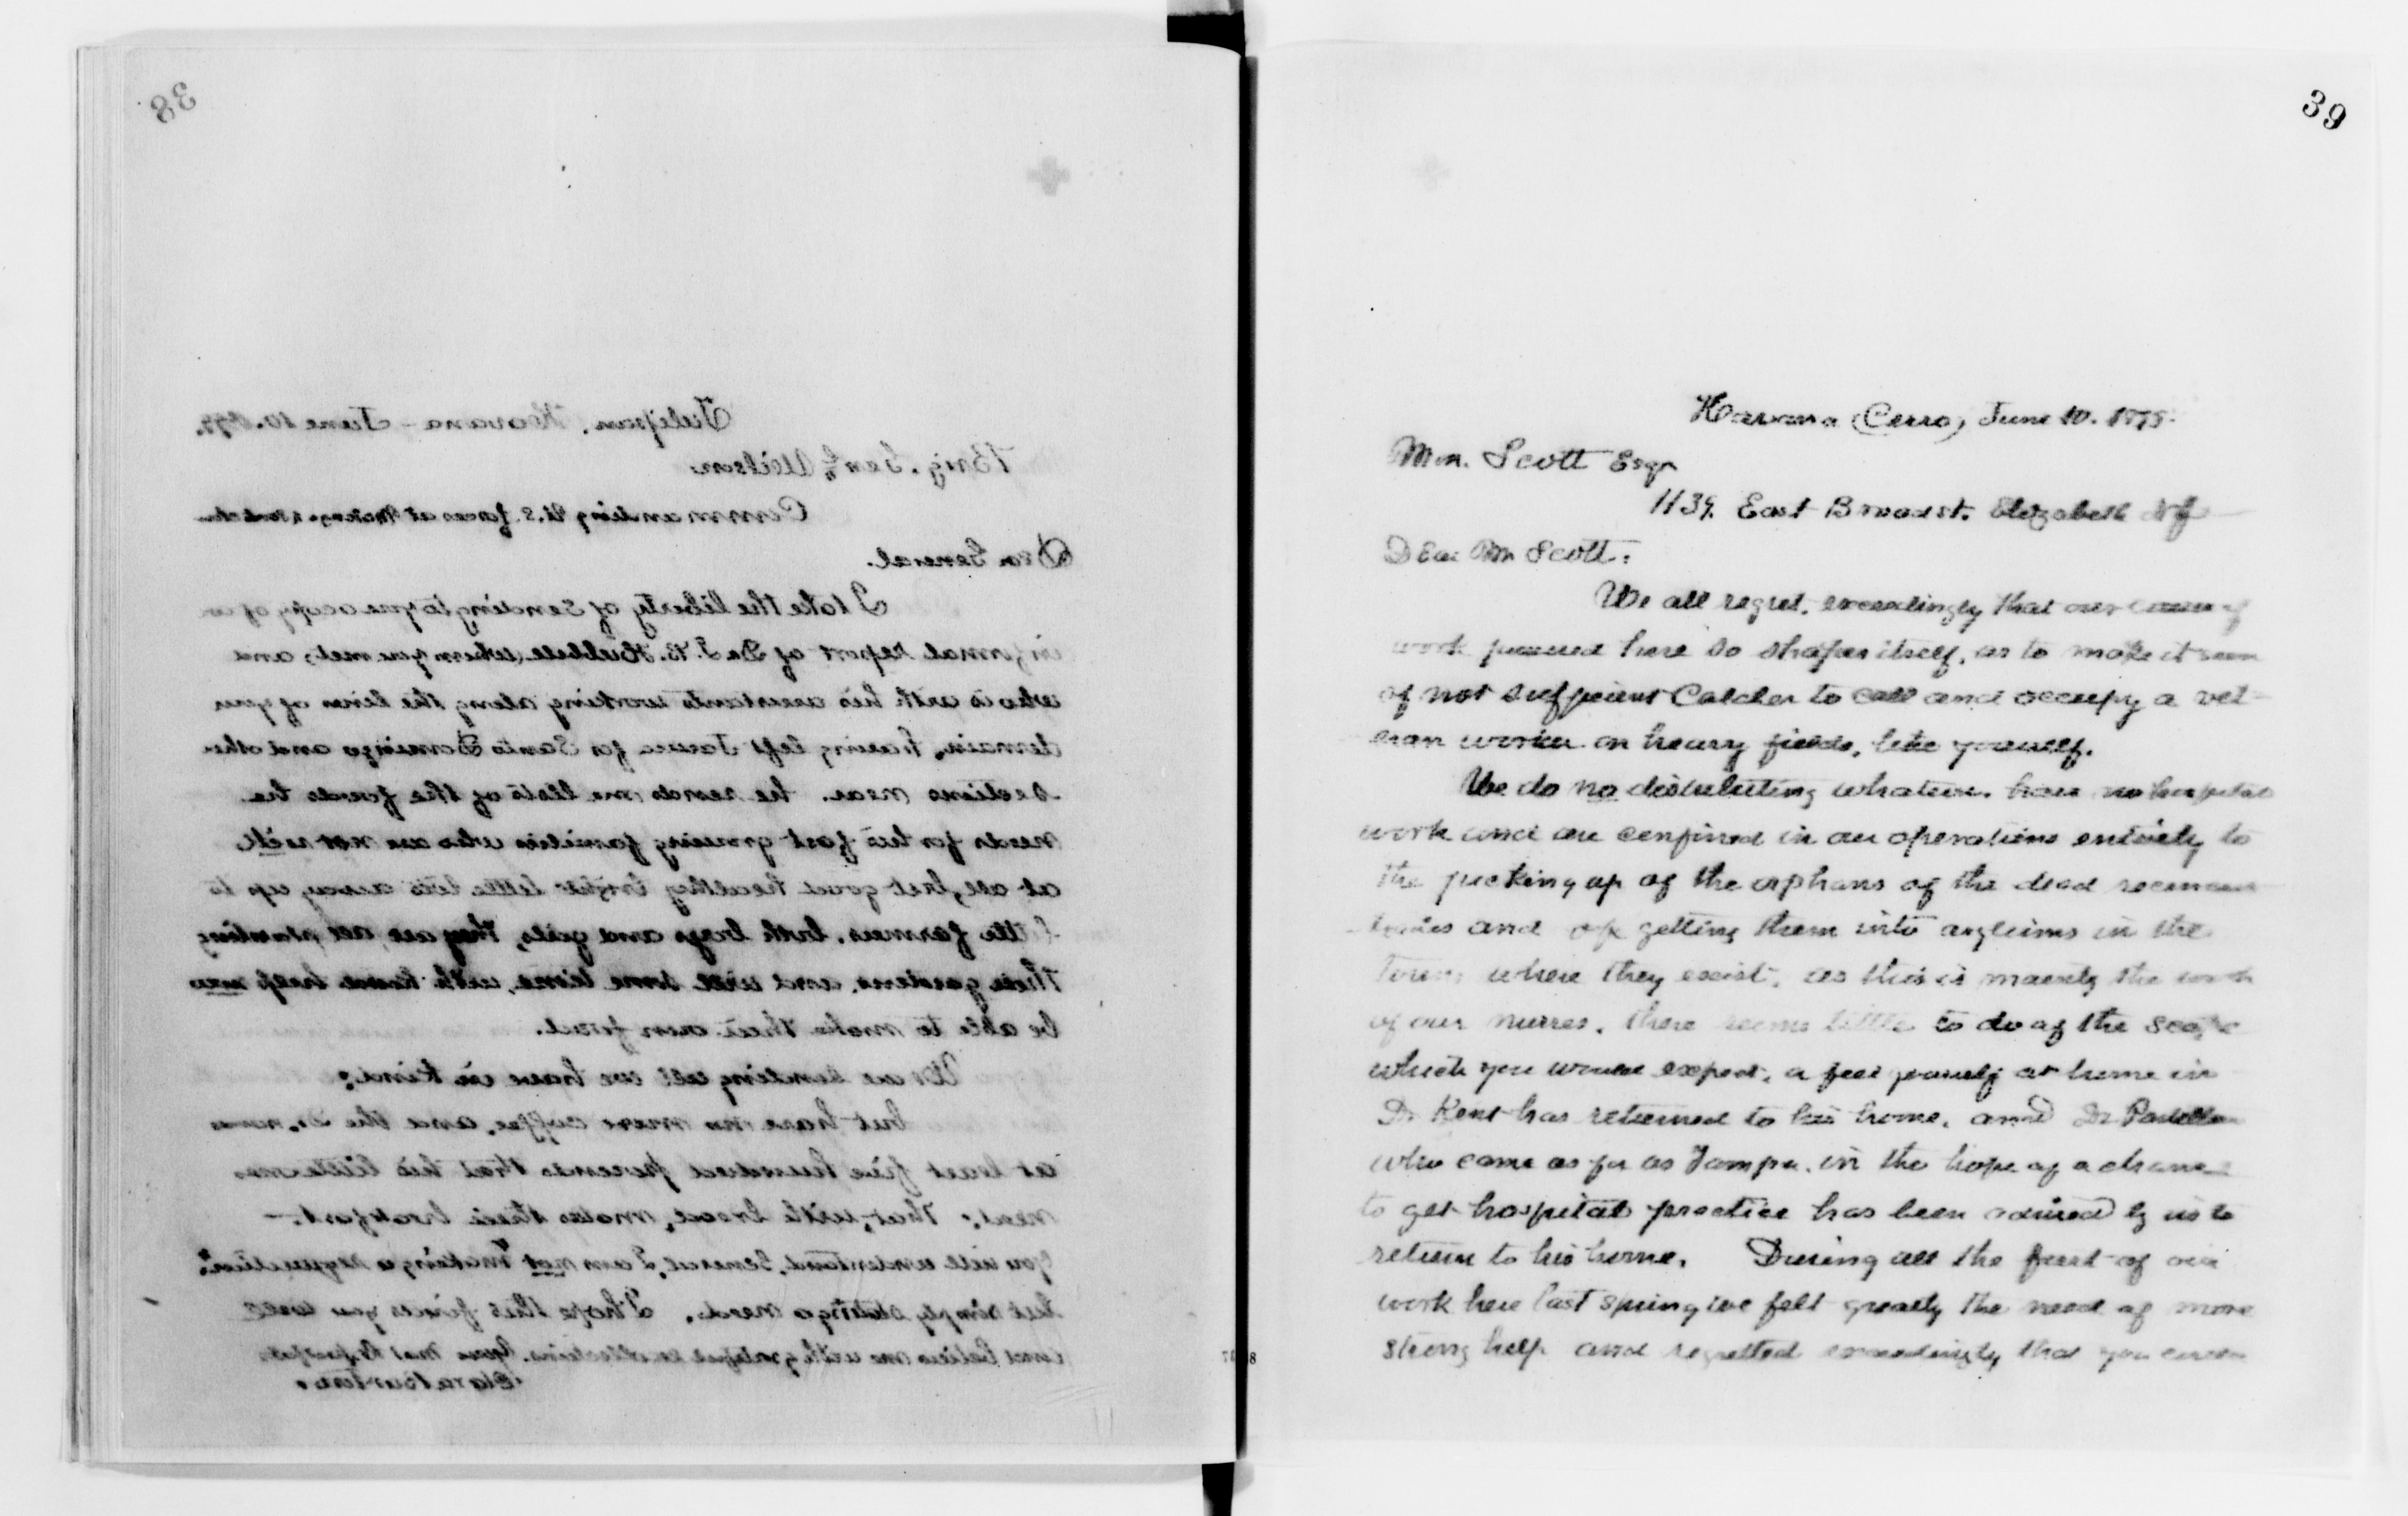 38
Tulipan, Havana - June 10. 1899.
Brig. Genl. Wilson
Commanding U.S. forces at
Dear General.
I take the liberty of sending to you a copy of an
informal report of Dr J. B. Hubbell (whom you met) and
who is with his assistants working along the lines of your
domain, having left Jaruco for Santo Domingo and other
sections near. he sends me lists of the foods he
needs for his fast growing families who are not sick
at all, but good healthy bright little lots away up to
little farmers, both boys and girls, they are all planting
their gardens, and will some time, with home help
be able to make their own food.
We are sending all we have in kind;
but have no more coffee, and the Dr. needs
at least five hundred pounds that his little ones
need; that, with bread, makes their breakfast. -
You will understand, General, I am not "making a requisition"
but simply stating a need. I hope this finds you well
and believe me with grateful recollections. Yours most Respectfully
Clara Barton.
39
Havana (Cerro) June 10. 1899.
Wm. Scott Esqr
1139. East Broad st. Elizabeth NJ
Dear Mr Scott:
We all regret, exceedingly that our course of
work pursued here so shapes itself, as to make it seem
of not sufficient Calcher to call and occupy a vet-
eran worker on heavy fields, like yourself.
We do no distributing whatever. have no hospital
work and are confined in our operations entirely to
the picking up of the orphans of the dead reconcen-
trados and of getting them into asylums in the
towns where they exist. as this is mainly the work
of our nurses, there seems little to do of the scope
which you would expect, or feel yourself at home in
Dr Kent has returned to his home. and Dr
who came as far as Tampa, in the hope of a chance
to get hospital practice has been advised by us to
return to his home. During all the first of our
work here last spring we felt greatly the need of more
strong help and regretted exceedingly that you